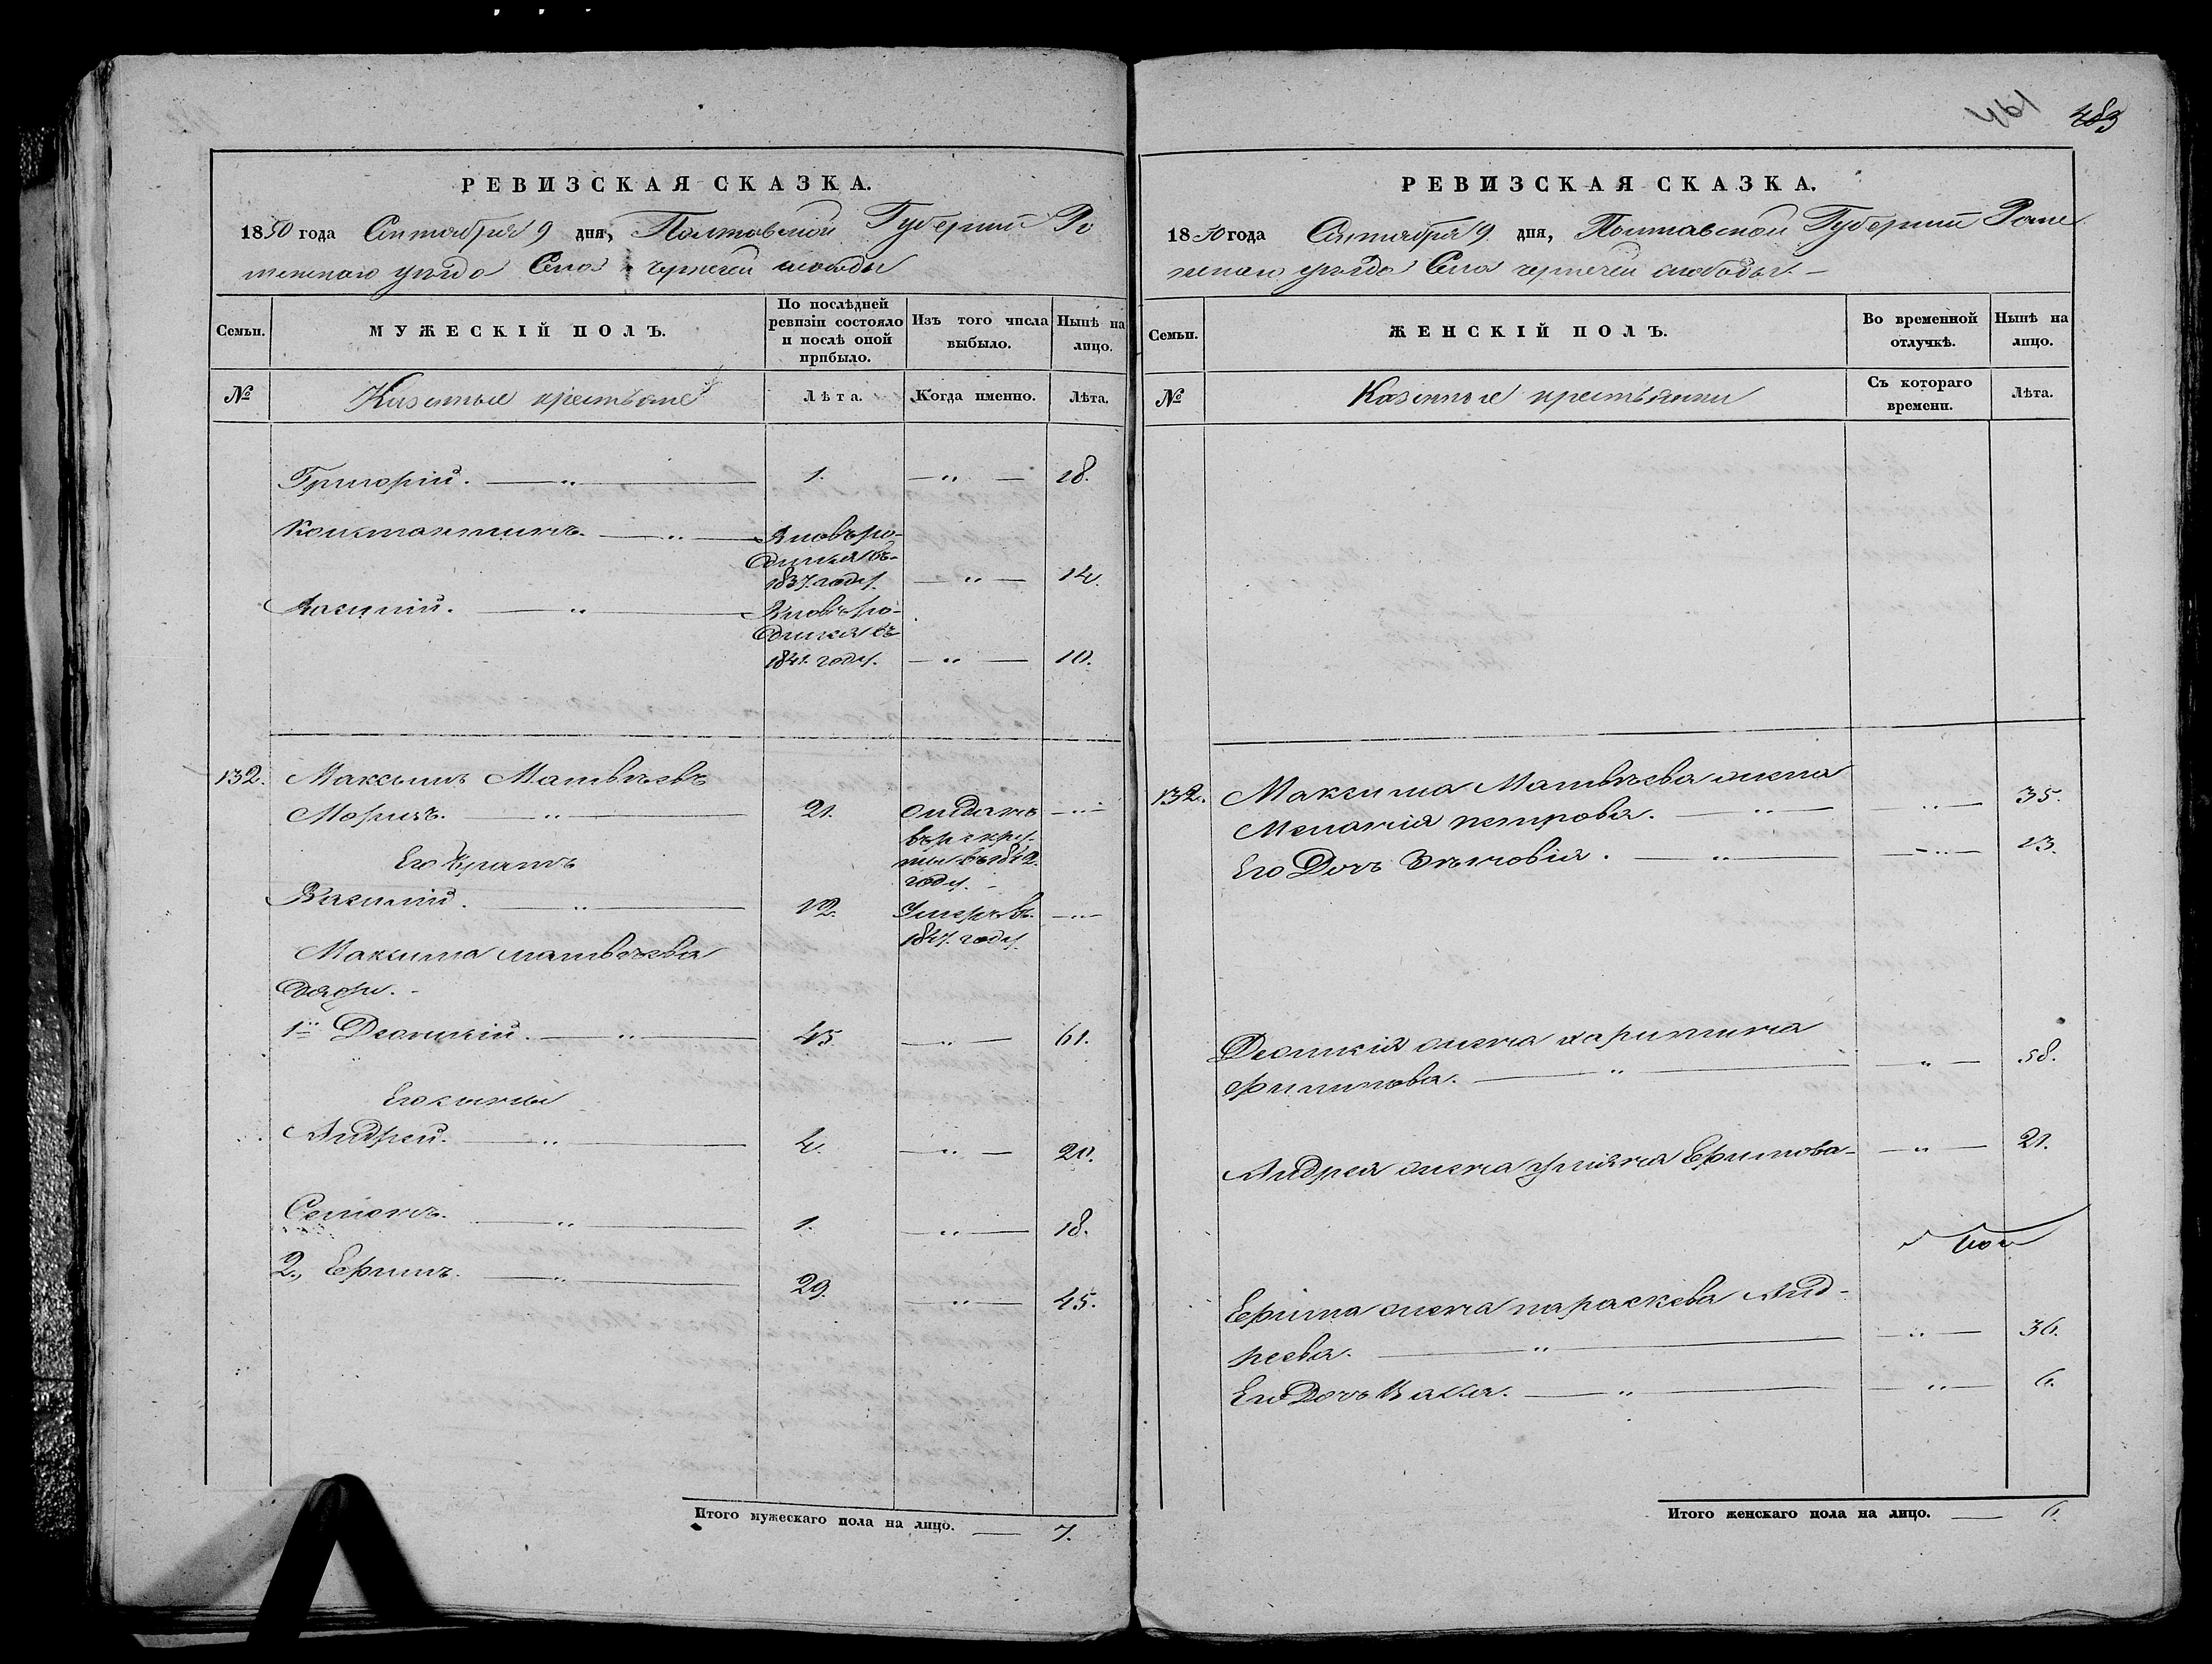 483
РЕВИЗСКАЯ СКАЗКА.
1850 года Сентября 9 дня, Полтавской Губернии Ро
менскаго уезда Села чернечей слободы
Семьи.
МУЖЕСКІЙ ПОЛЪ.
По послѣдней ревизіи состояло и послѣ оной прибыло.
Изъ того числа выбыло.
Нынѣ на лицо.
№
Казенные крестьяне
Лѣта.
Когда именно.
Лѣта.
Григорій. — „ — 1. — „ — 18.
Константинъ. — „ — Вновь ро-
дился въ
1837. году. — „ — 14.
— „ — Вновь ро-
дился въ
1841. году. — „ — 10.
132. Максимъ Матвѣевъ
— „ — 21. отданъ — „ —
въ рекру-
ты въ 1842.
году.
Его братъ
Василій. — „ — 12. Умеръ въ — „ —
1847. году.
Максима матвѣева
дяди. -
1й Леонтій. — „ — 45. — „ — 61.
Его сыны
Андрей. — „ — 4. — „ — 20.
Семенъ. — „ — 1. — „ — 18.
2., Ефимъ. — „ — 29. — „ — 45.
Итого мужескаго пола на лицо. — 7.
РЕВИЗСКАЯ СКАЗКА.
1850 года Сентября 9 дня, Полтавской Губернии Роме
нскаго уезда Села чернечей слободы. —
Семьи.
ЖЕНСКІЙ ПОЛЪ.
Во временной отлучкѣ.
Нынѣ на лицо.
№
Казенные крестьянки
Съ котораго времени.
Лѣта.
132. Максима Матвѣева жена
Меланія петрова. — „ — „ — 35.
Его Дочь Зѣновія. — „ — „ — 13.
жена харитина
филипова. — „ — „ — 58.
Андрея жена уліяна Ефимова — „ — 21.
Ефима жена параскева Анд-
реева. — „ — „ — 36.
Его Дочь — „ — „ — 6.
Итого женскаго пола на лицо. — 6.